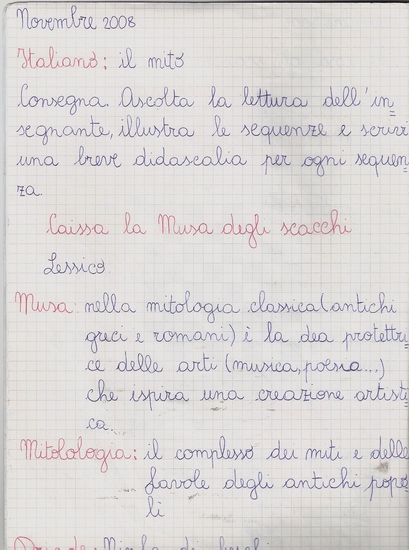 Novembre 2008
Italiano: il mito
Consegna. Ascolta la lettura dell'in=
segnante, illustra le sequenze e scrivi
una breve didascalia per ogni sequen=
za.
Caissa la Musa degli scacchi
Lessico
Musa: nella mitologia classica (antichi
greci e romani) è la dea protettri=
ce delle arti (musica, poesia...)
che ispira una creazione artisti=
ca.
Mitolologia: il complesso dei miti e delle
favole degli antichi popo=
li